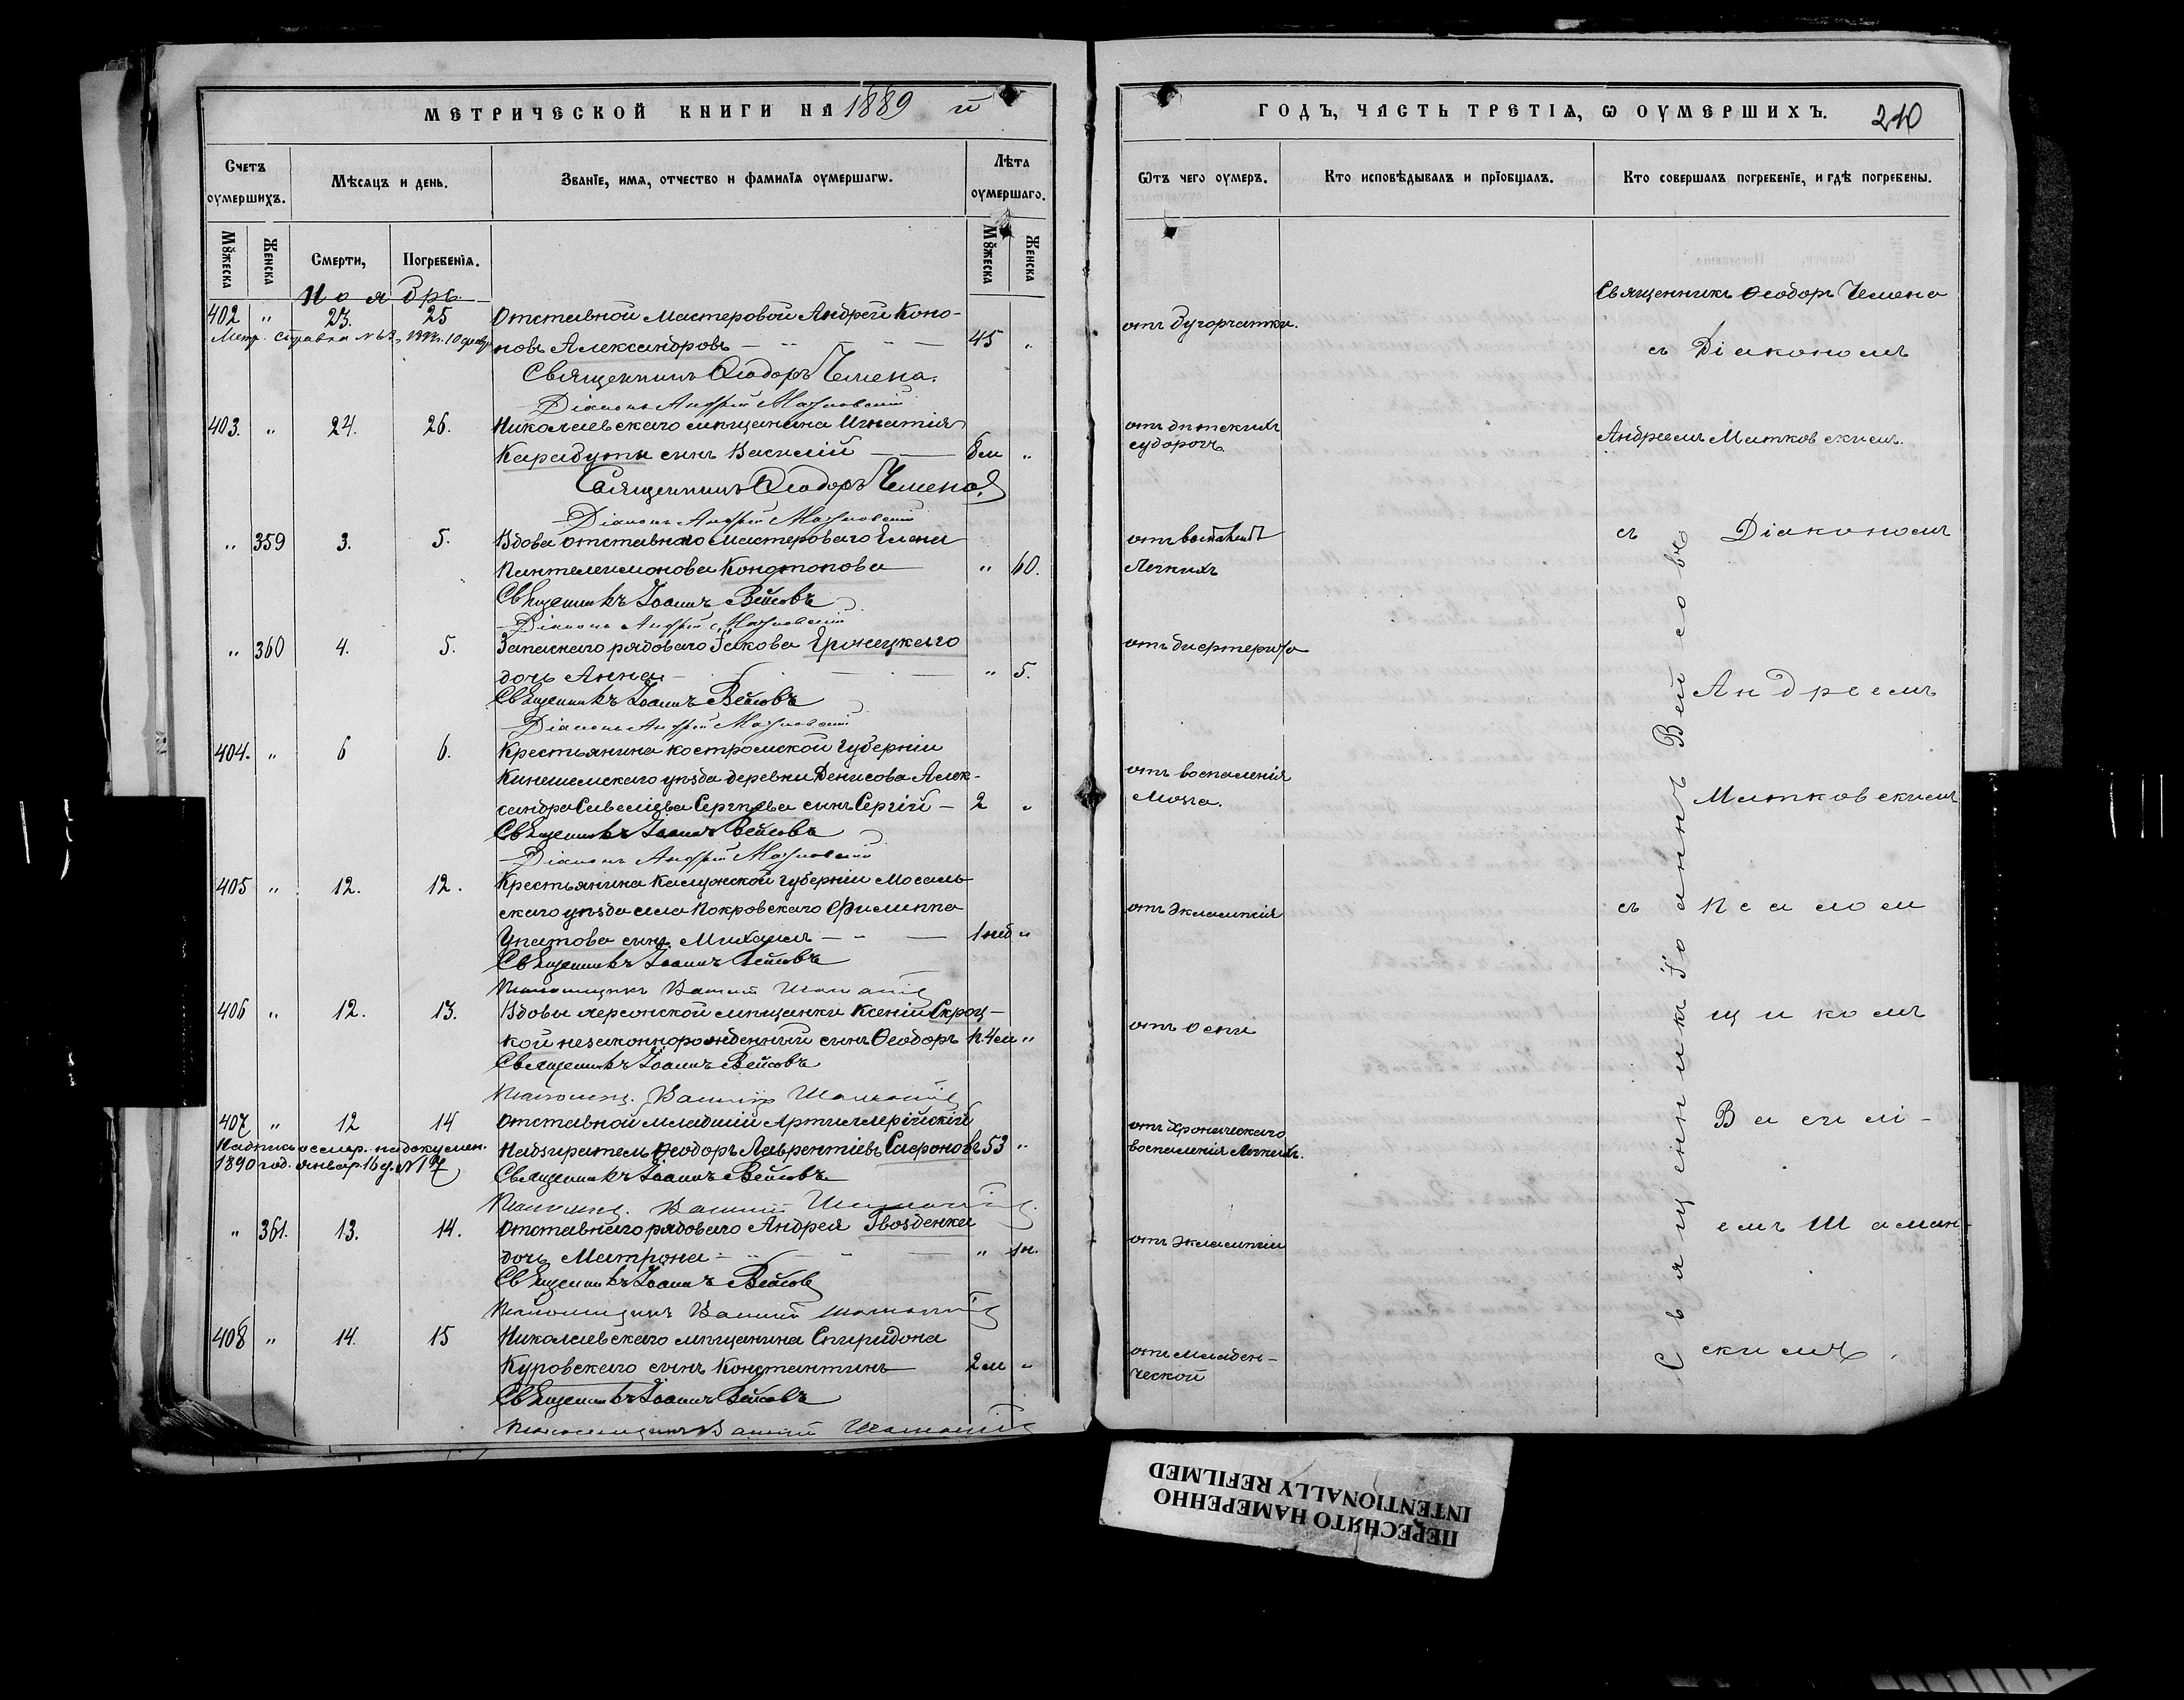 МЕТРИЧЕСКОЙ КНИГИ НА 1889 й
Счетъ оумершихъ.
Мѣсяцъ и день.
Званїе, имя, отчество и фамилїя оумершагѡ.
Лѣта оумершаго.
Мꙋжеска
Женска
Смерти,
Погребенїя.
Мꙋжеска
Женска
Ноябрь
402 " 23. 25 Отставной Мастеровой Андрей Коно-
Метр. справка № 63,
новъ Александровъ — 45 "
Священникъ Ѳеодоръ Чемена.
Діаконъ Андрей Матковскій
403. " 24. 26. Николаевскаго мѣщанина Игнатія
Карадуты сынъ Василій — 8 м "
Священникъ Ѳеодоръ Чемена
Діаконъ Андрей Матковскій
" 359 3. 5. Вдова отставнаго Мастероваго Елена
Пантелеимонова Конотопова " 60.
Священникъ Іоаннъ Вейсовъ
Діаконъ Андрей Матковскій
" 360 4. 5. Запаснаго рядоваго Іакова Гронецкаго
дочь Анна — " 5.
Священникъ Іоаннъ Вейсовъ
Діаконъ Андрей Матковскій
404. " 6 6. Крестьянина костромской губерніи
Кинешемскаго уѣзда деревни Денисова Алек-
сандра Савеліева Сергѣева сынъ Сергій — 2 "
Священникъ Іоаннъ Вейсовъ
Діаконъ Андрей Матковскій
405 " 12. 12. Крестьянина Калужской губерніи Мосаль-
скаго уѣзда села Покровскаго Филиппа
Упатова сынъ Михаилъ — 1 нед "
Священникъ Іоаннъ Вейсовъ
Псаломщикъ Василій Шаманскій
406 " 12. 13. Вдовы херсонской мѣщанки Ксеніи Скроц-
кой незаконнорожденный сынъ Ѳеодоръ 4 м "
Священникъ Іоаннъ Вейсовъ
Псаломщ. Василій Шаманскій
407 " 12 14 Отставной младшій Артиллерійскій
Надпись о смер. на докумен.
Надзиратель Ѳеодоръ Лаврентіевъ Сафоновъ 53 "
1890 год. Январ. 16 д. № 17
Священникъ Іоаннъ Вейсовъ
Псаломщ. Василій Шаманскій
" 361. 13. 14. Отставнаго рядоваго Андрея Гвозденка
дочь Матрона — " 1 н.
Священникъ Іоаннъ Вейсовъ
Псаломщикъ Василій Шаманскій
408 " 14. 15 Николаевскаго мѣщанина Спиридона
Куровскаго сынъ Константинъ 2 м "
Священникъ Іоаннъ Вейсовъ
Псаломщикъ Василій Шаманскій
ГОДЪ, ЧАСТЬ ТРЕТІѦ, Ѡ ОУМЕРШИХЪ. 210
Ѿтъ чего оумеръ.
Кто исповѣдывалъ и прїобщалъ.
Кто совершалъ погребенїе, и гдѣ погребены.
Священникъ Ѳеодоръ Чемена
отъ бугорчатки.
съ Діакономъ
отъ дѣтскихъ
судорогъ.
Андреемъ Матковскимъ.
отъ воспаленія
Легкихъ
съ Діакономъ
отъ дифтерита
Андреемъ
отъ воспаленія
Мозга.
Матковскимъ
отъ Эклампсіи
съ Псалом
щикомъ
отъ Оспы
Василі-
отъ хроническаго
воспаленія Легкихъ.
емъ Шаман-
отъ Эклампсіи
скимъ.
отъ младен-
ческой
Священникъ Іоаннъ Вейсовъ
ПЕРЕСНЯТО НАМЕРЕННО
INTENTIONALLY REFILMED